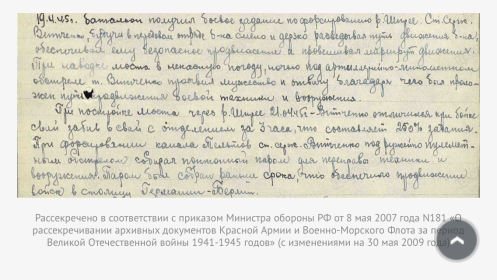 19.4.45г. Батальон получил боевое задание по форсированию р. Шпрее. Ст. Серж.
Витченко, будучи в головном отряде б-на смело и дерзко разведовал путь движения б-на,
обеспечивая ему безопасное продвижение и провешивая маршрут движения.
При наводке моста в ненастную погоду, ночью под артиллерийско-минометном
обстреле т. Витченко проявил мужество и отвагу, благодаря чего был проло-
жен путь продвижения боевой техники и вооружения.
При постройке моста через р. Шпрее 21.04.45г. Витченко отличился при бойке
свай забив 6 свай с отделением за 3 часа, что составляет 250% задания.
При форсировании канала Тельтов ст. серж. Витченко под ружейно пулемет-
ным обстрелом собирал понтонный паром для переправы техники и
вооружения. Паром был собран раньше срока, что обеспечило продвижение
войск в столицу Германии - Берлин.
Рассекречено в соответствии с приказом Министра обороны РФ от 8 мая 2007 года N181 «О
рассекречивании архивных документов Красной Армии и Военно-Морского Флота за период
Великой Отечественной войны 1941-1945 годов» (с изменениями на 30 мая 2009 года)